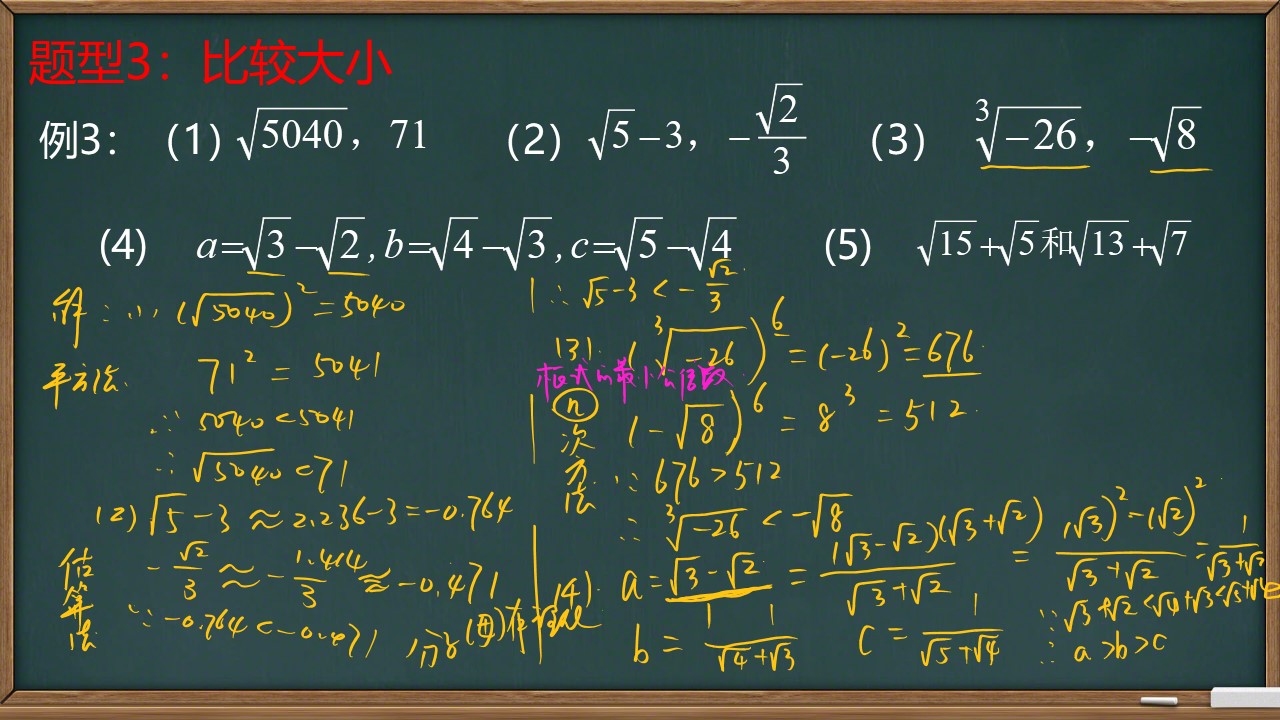 题型3：比较大小
例3： (1) √5040，71 (2) √5−3，−√2/3 (3) ∛−26，−√8
(4) a=√3−√2,b=√4−√3,c=√5−√4 (5) √15+√5和√13+√7
解：(1) (√5040)²=5040
平方法
71²=5041
∵ 5040<5041
∴ √5040<71
(2) √5−3≈2.236−3=−0.764
估算法
−√2/3≈−1.414/3≈−0.471
∵ −0.764<−0.471
∴ √5−3<−√2/3
(3) (∛−26)⁶=(−26)²=676
根式的最小公倍数
n次方法
(−√8)⁶=8³=512
∵ 676>512
∴ ∛−26<−√8
分子(母)有理化
(4) a=√3−√2=(√3−√2)(√3+√2)/√3+√2=(√3)²−(√2)²/√3+√2=1/√3+√2
b=1/√4+√3 c=1/√5+√4
∵ √3+√2<√4+√3<√5+√4
∴ a>b>c